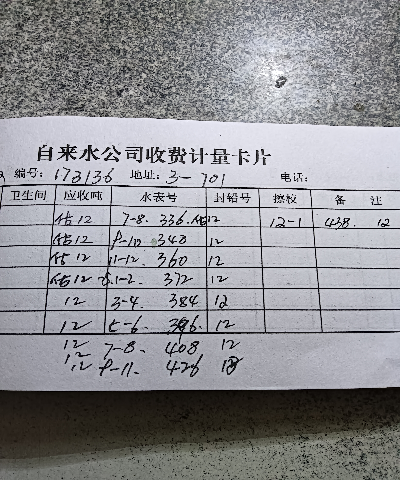 自来水公司收费计量卡片
编号: 173136 地址: 3-701 电话:
卫生间 应收吨 水表号 封铅号 擦校 备 注
估12 7-8. 336.估12 12-1 438. 12
估12 9-10 348 12
估12 11-12. 360 12
估12 1-2. 372 12
12 3-4. 384 12
12 5-6. 396. 12
12 7-8. 408 12
12
12 9-11. 426